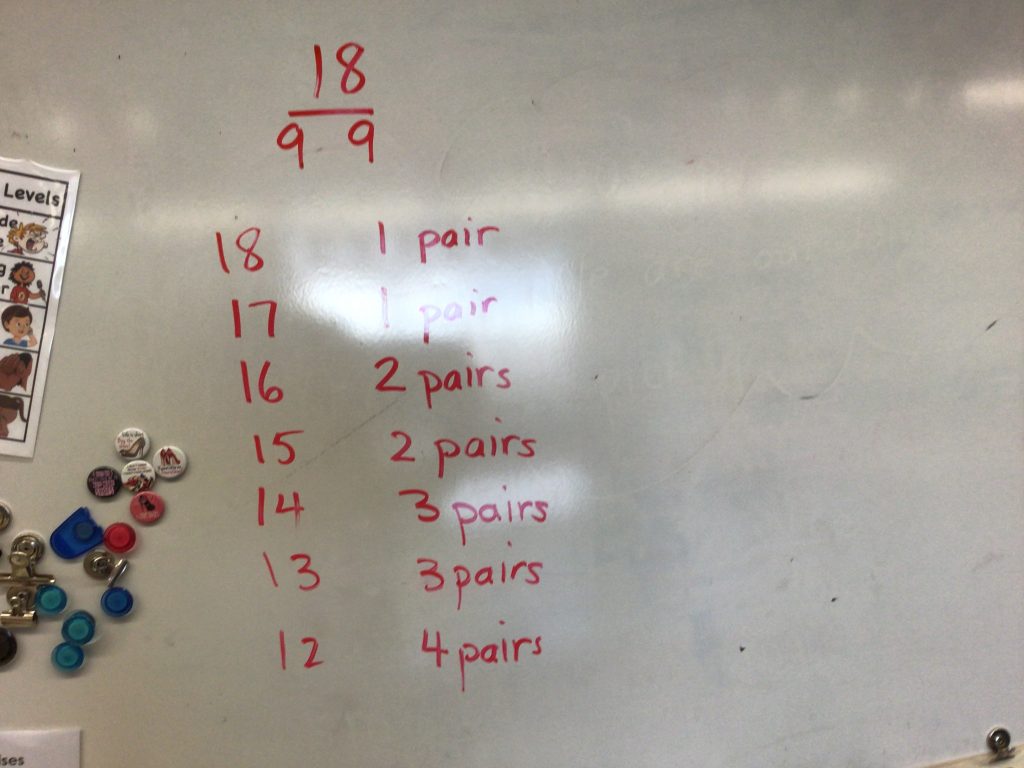 18
9 9
Levels
18 1 pair
17 1 pair
16 2 pairs
15 2 pairs
14 3 pairs
13 3 pairs
12 4 pairs